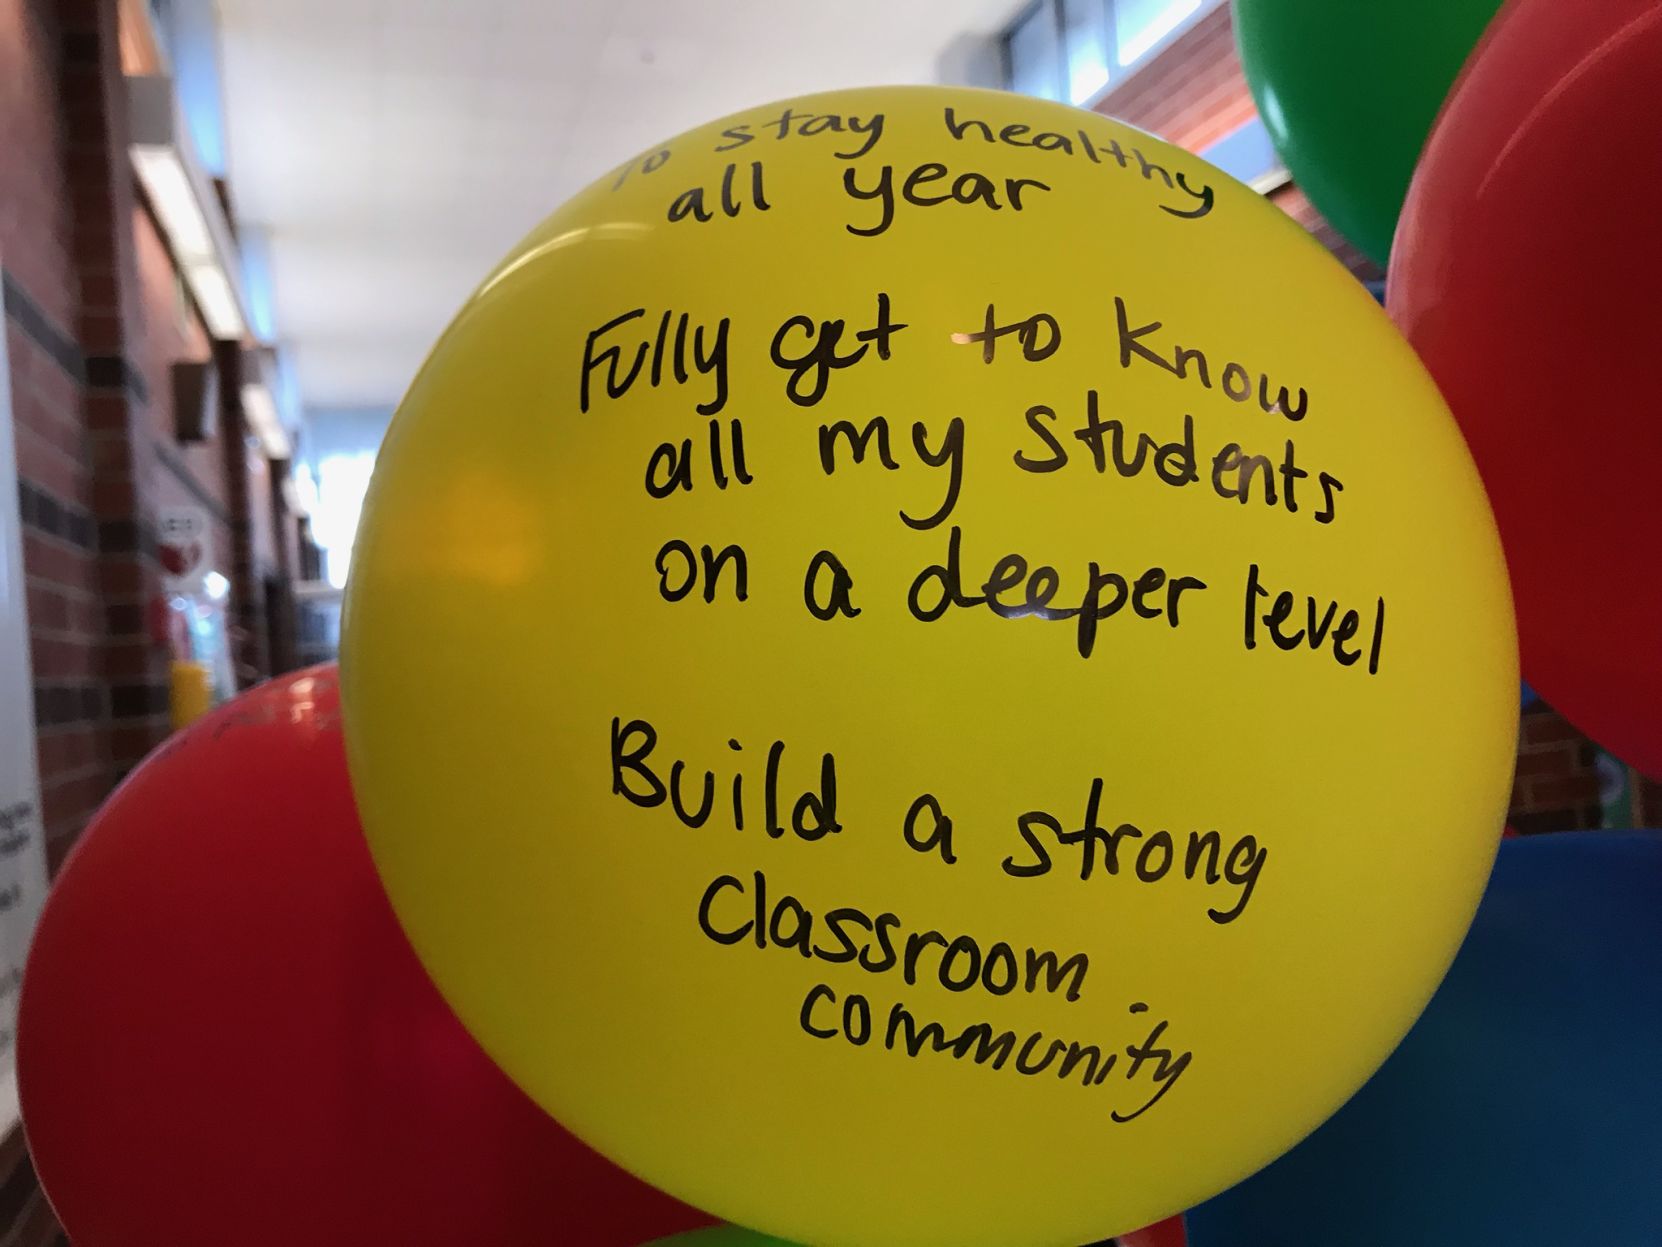 To stay healthy
all year
Fully get to know
all my students
on a deeper level
Build a strong
classroom
community